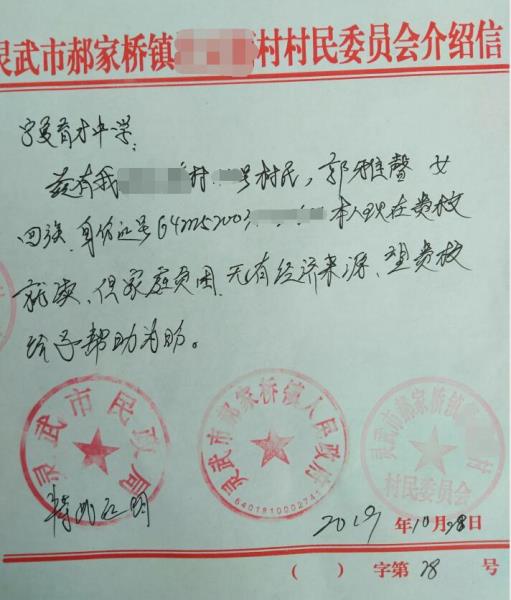 灵武市郝家桥镇 村村民委员会介绍信
宁夏育才中学:
兹有我 村 号村民,郭雅馨 女
回族,身份证号 642225200 本人现在贵校
就读,但家庭贫困,无有经济来源,望贵校
给予帮助为盼。
灵武市民政局
灵武市郝家桥镇人民政府
6401810002741
灵武市郝家桥镇 村
村民委员会
特此证明
2019年10月28日
( ) 字第 28 号